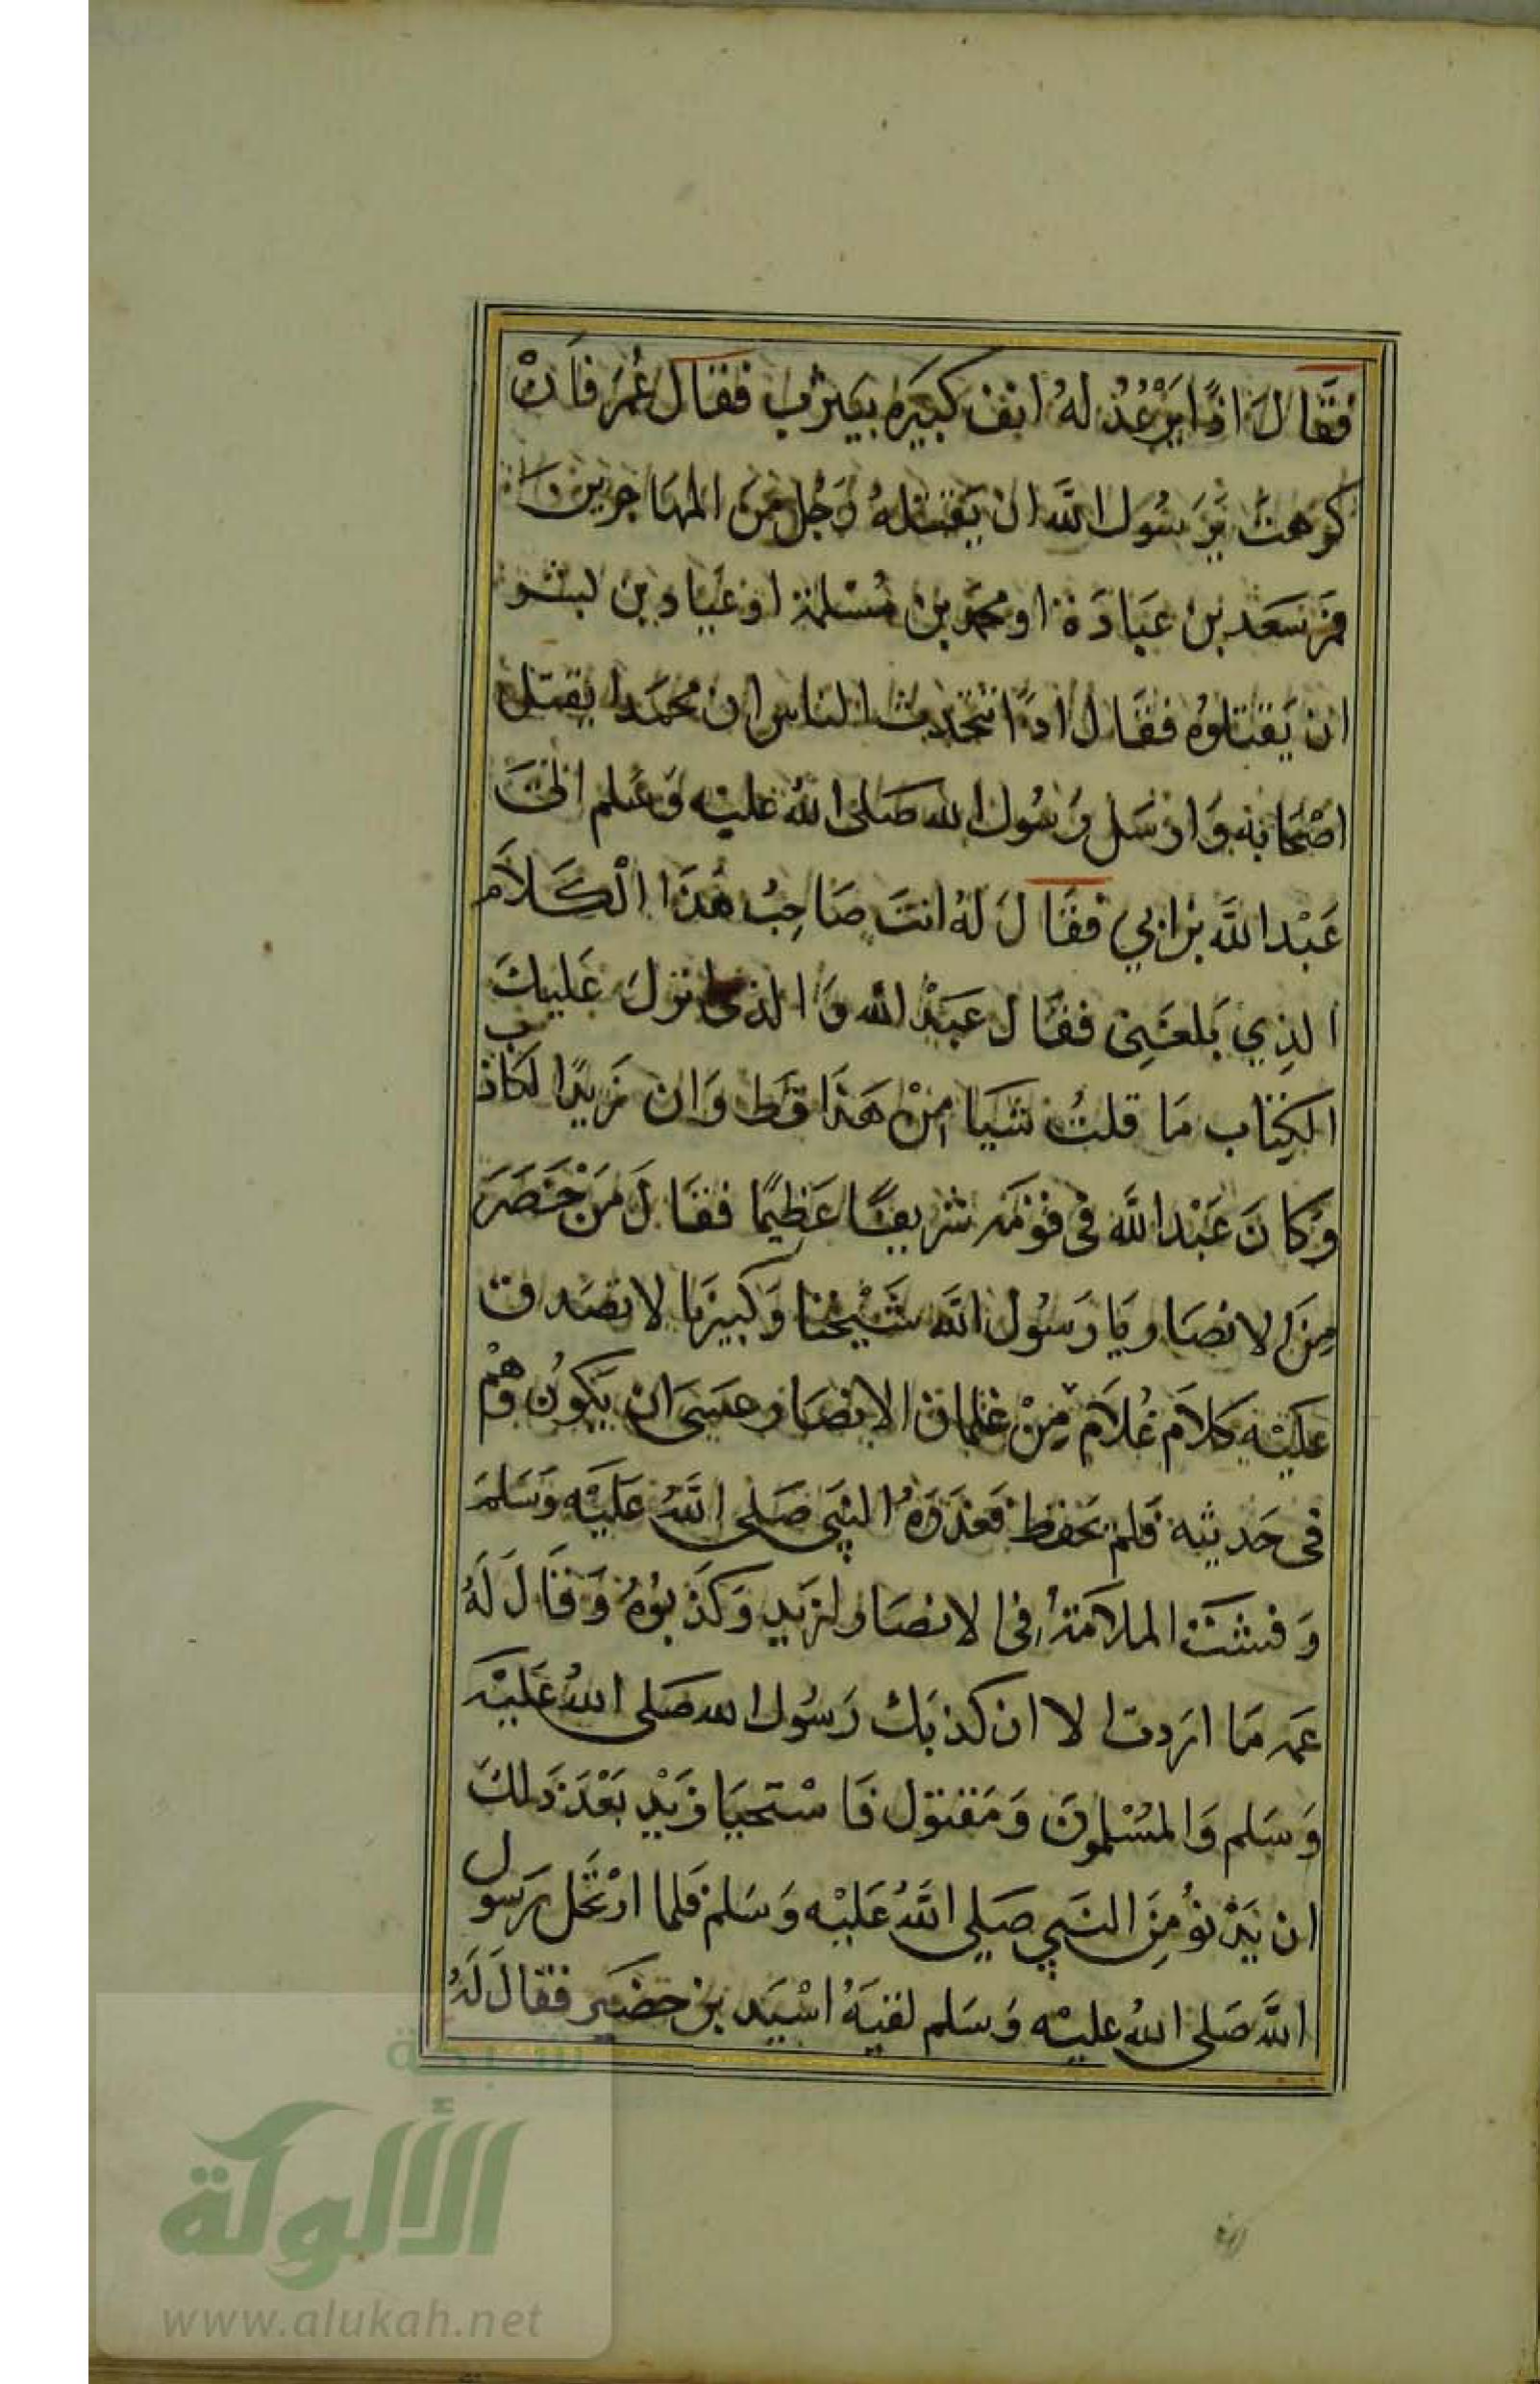 فَقَالَ اذًا يَرْعُدُ لهُ انف كبيَره بيَثرب فقال عُمَر فَاِنْ
كرهتَ يَرَسُول اللَّه ان يَقتله رَجُل مِنَ المهَاجرين
فمَر سَعَد بن عبَادَة او محمد بن مُسْلمة او عبَاد بن بشر
ان يَقتلوُه فقَال اذًا تتحَدث الناس ان محمَدا يقتل
اصْحَابه وَارْسَل رَسُول الله صَلى اللهُ عليْه وَسَلم الىَ
عَبْد اللَّه بن ابي فقَالَ لهُ انتَ صَاحِبُ هَذَا الْكَلاَم
الذِي بَلغَنِى فقَال عَبَدْ الله وَالذى انزلَ عَليكَ
الكِتَاب مَا قلتُ شَيَا مِنْ هَذَا قَط وَان زيدًا لكاذب
وَكانَ عَبْد اللَّه فى قوْمَه شَريفًا عَظِيمًا فقَالَ مَنْ حَضَرَ
مِنَ الانصَار يَا رَسُول اللَّه شَيْخنا وَكبيرَنا لا تصَدق
عَليْه كلاَم غُلاَم مِنْ غلمان الانصَار عَسَى ان يَكوُن وَهْم
فى حَديثه فَلم يَحفظ فَعذَرَهُ النبَى صَلى اللَّهُ عَليَه وَسَلمَ
وَفشَت الملاَمَةُ فى الانصَار لزَيد وَكذَبوُهُ وَقَالَ لَهُ
عَمه مَا اردت الا ان كذبَك رَسُول الله صَلى اللهُ عَليَه
وَسَلم وَالمسْلموُنَ وَمَقتوُل فَاسْتحيَا زَيْد بَعْدَ ذَلك
ان يَدْنوُ مِنَ النبَي صَلي اللَّهُ عَليْه وَسَلم فَلما ارْتحَل رَسول
اللَّه صَلى اللهُ عليْه وَسَلم لقيَهُ اسْيَد بن حضَير فقالَ لَهُ
شبكة
الألوكة
www.alukah.net